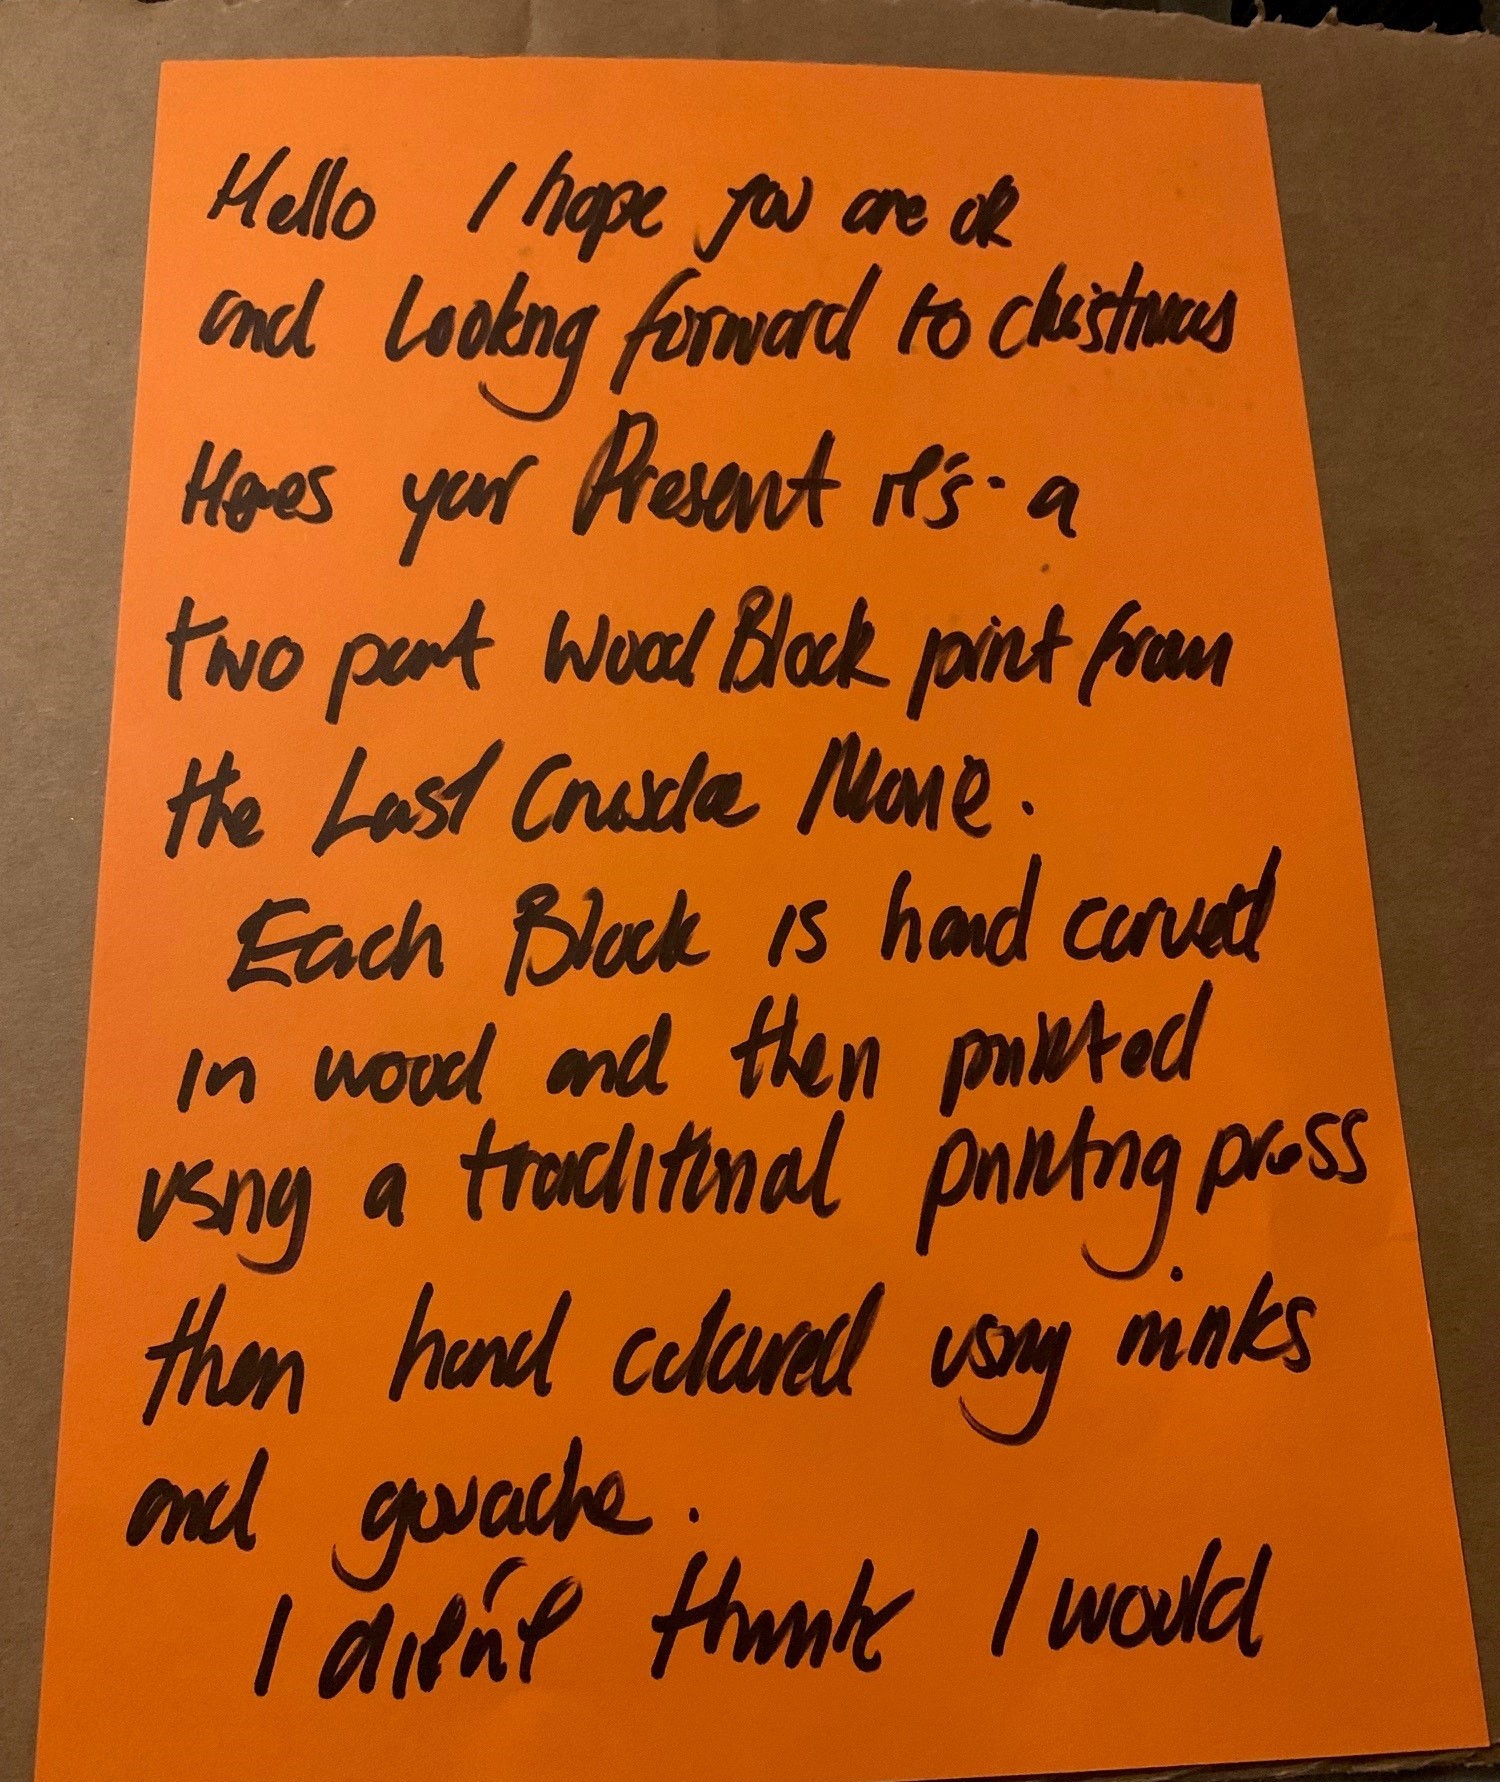 Hello I hope you are ok
and Looking forward to christmas
Heres your Present it's a
two part Wood Block print from
the Last Crusade Movie.
Each Block is hand carved
in wood and then printed
using a traditional printing press
then hand coloured using inks
and gouache.
I didn't think I would